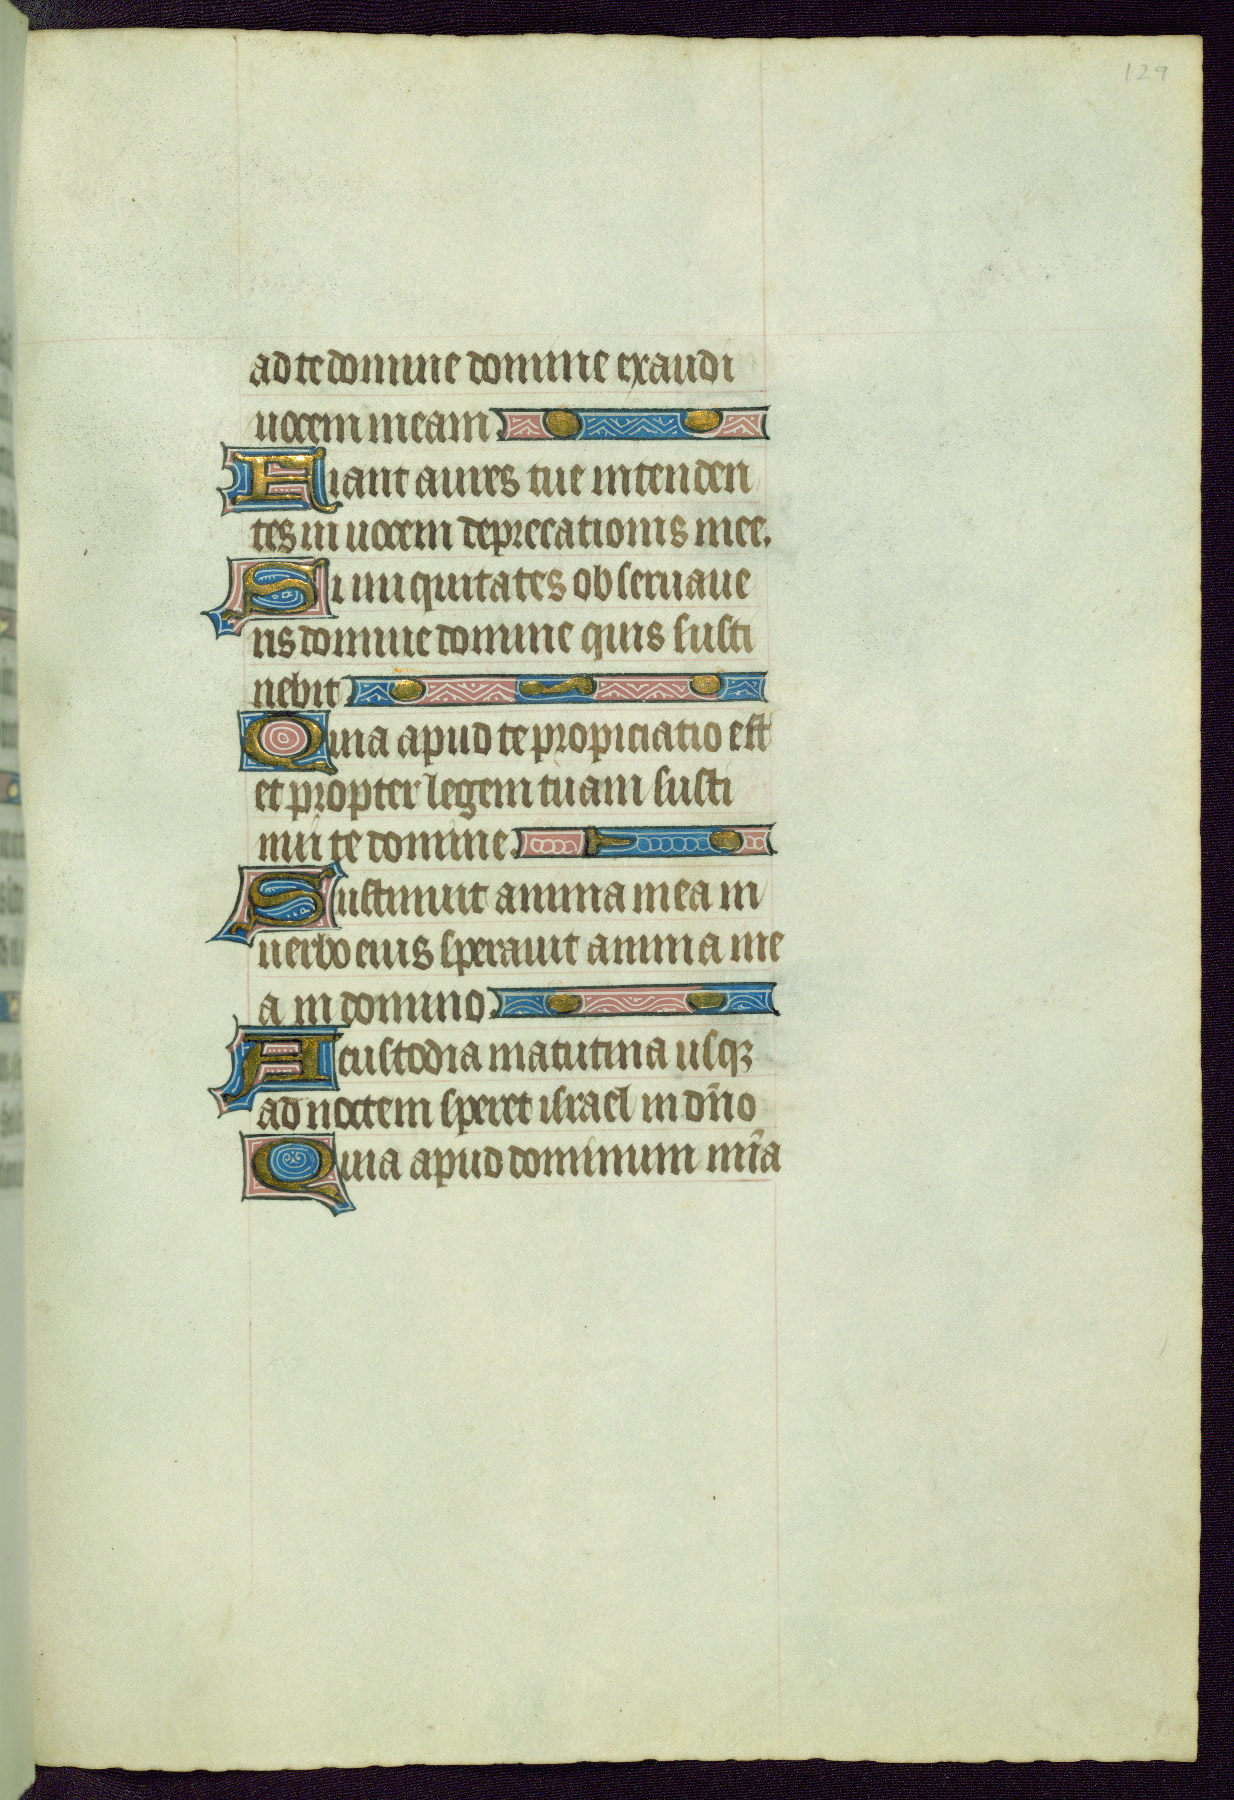 129
ad te domine domine exaudi
uocem meam.
Fiant aures tue intenden
tes in uocem deprecationis mee.
Si iniquitates obseruaue
ris domine domine quis susti
nebit.
Quia apud te propiciatio est
et propter legem tuam susti
nui te domine.
Sustinuit anima mea in
uerbo eius sperauit anima me
a in domino.
A custodia matutina usqꝫ
ad noctem speret israel in dn̄o
Quia apud dominum mīa